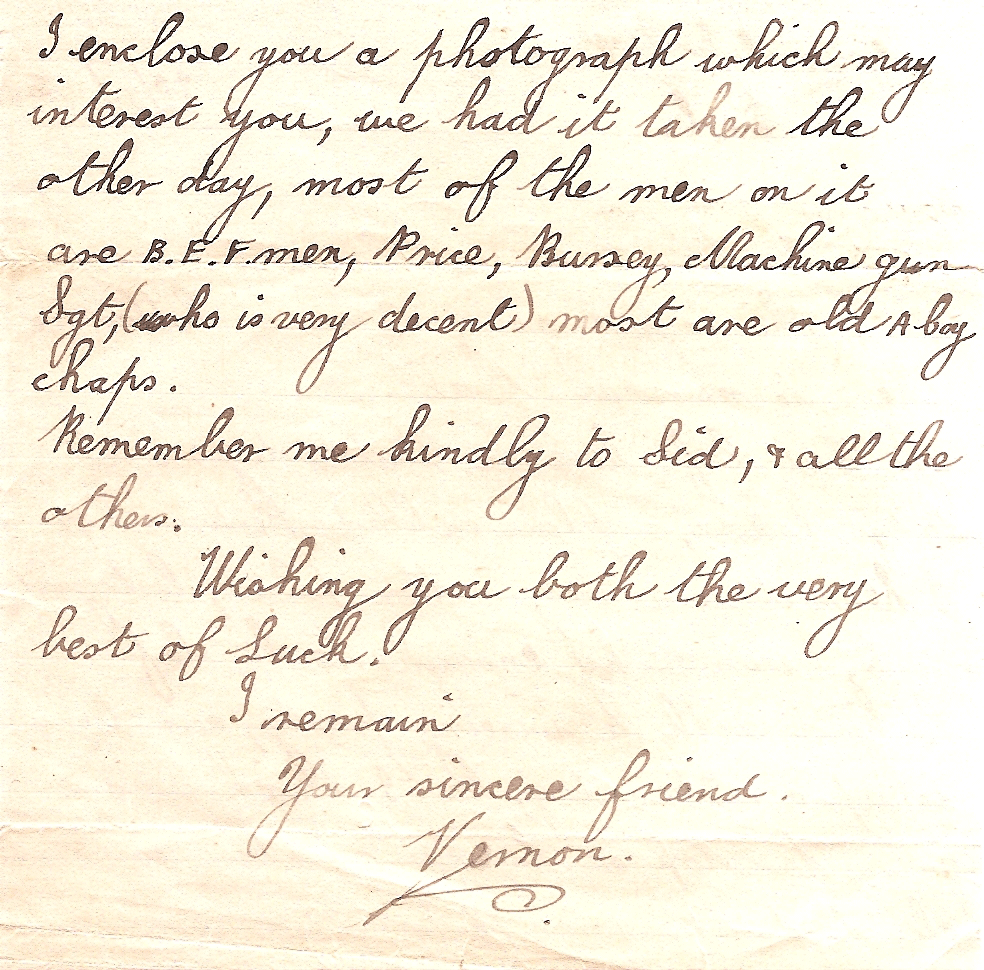 I enclose you a photograph which may
interest you, we had it taken the
other day, most of the men on it
are B.E.F. men, Price, Bussey, Machine gun
Sgt, (who is very decent) most are old A boy
chaps.
Remember me kindly to Sid, & all the
others.
Wishing you both the very
best of Luck.
I remain
Your sincere friend.
Vernon.